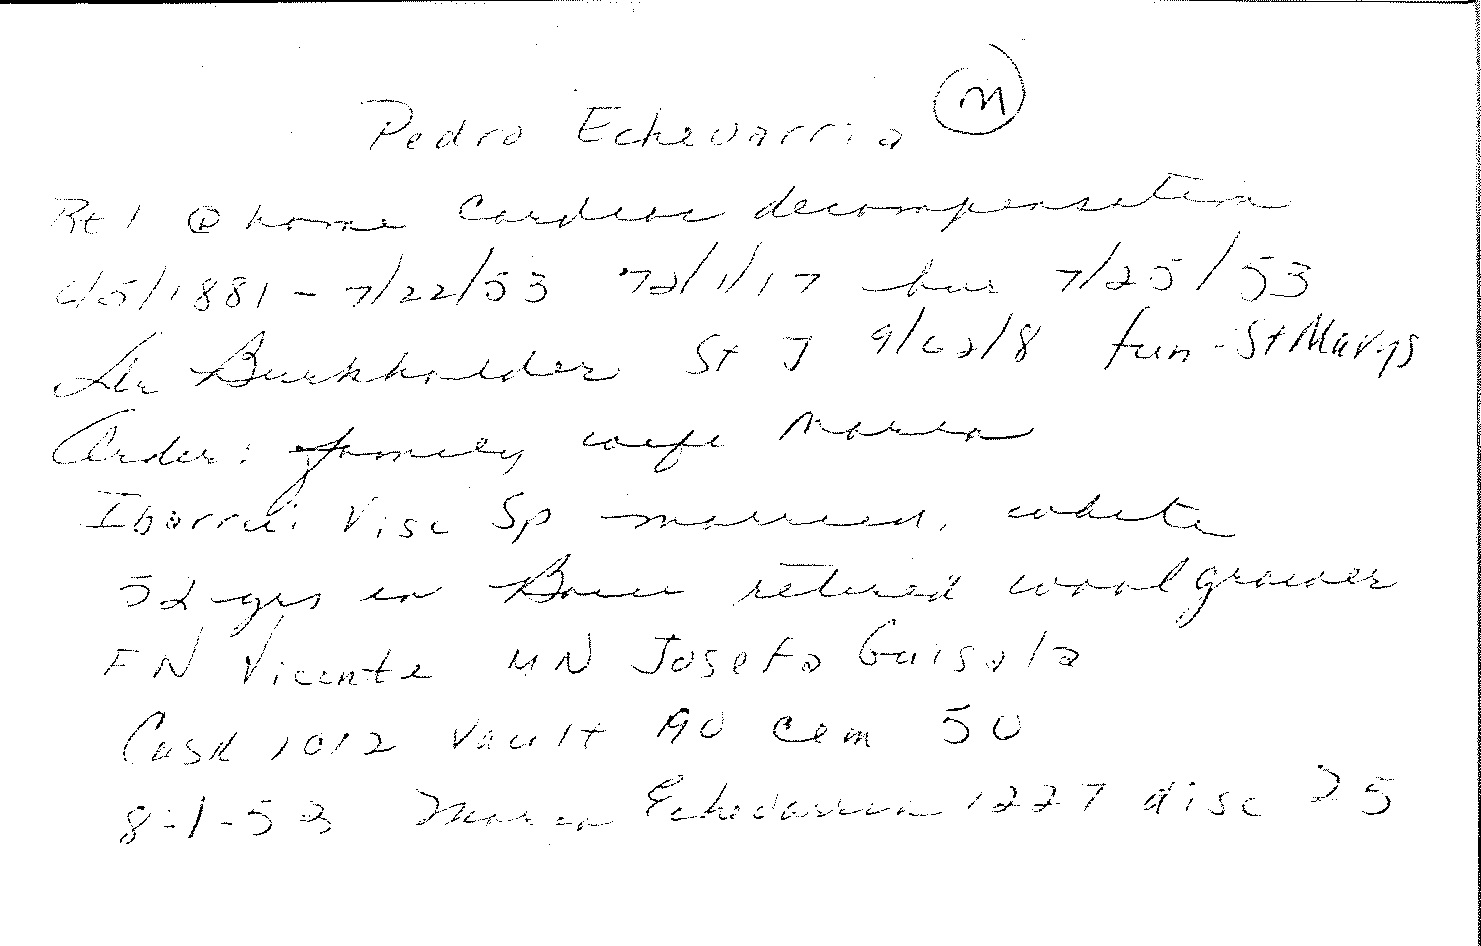 Pedro Echevarria M
Rt 1 @ home Cardiac decompensation
6/5/1881 - 7/22/53 72/1/17 bur 7/25/53
Dr Burkholder St J 9/62/8 fun - St Marys
Order: family wife Maria
Ibarra: Visc Sp married, white
52 yrs in Boise retired wool grower
FN Vicente MN Josefa Guisala
Cask 1012 Vault 190 cem 50
8-1-53 Maria Echevarria 1227 disc 25